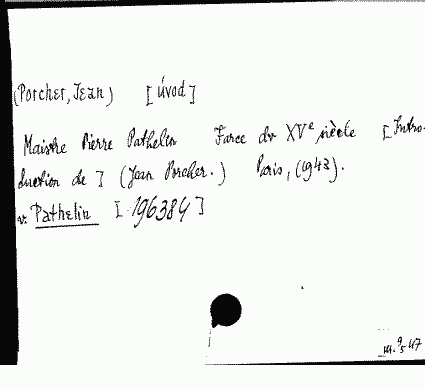 (Porcher, Jean) [Úvod]
Maistre Pierre Pathelin Farce du XVe siècle [Intro-
duction de] (Jean Porcher.) Paris, (1943).
v. Pathelin [196384]
47